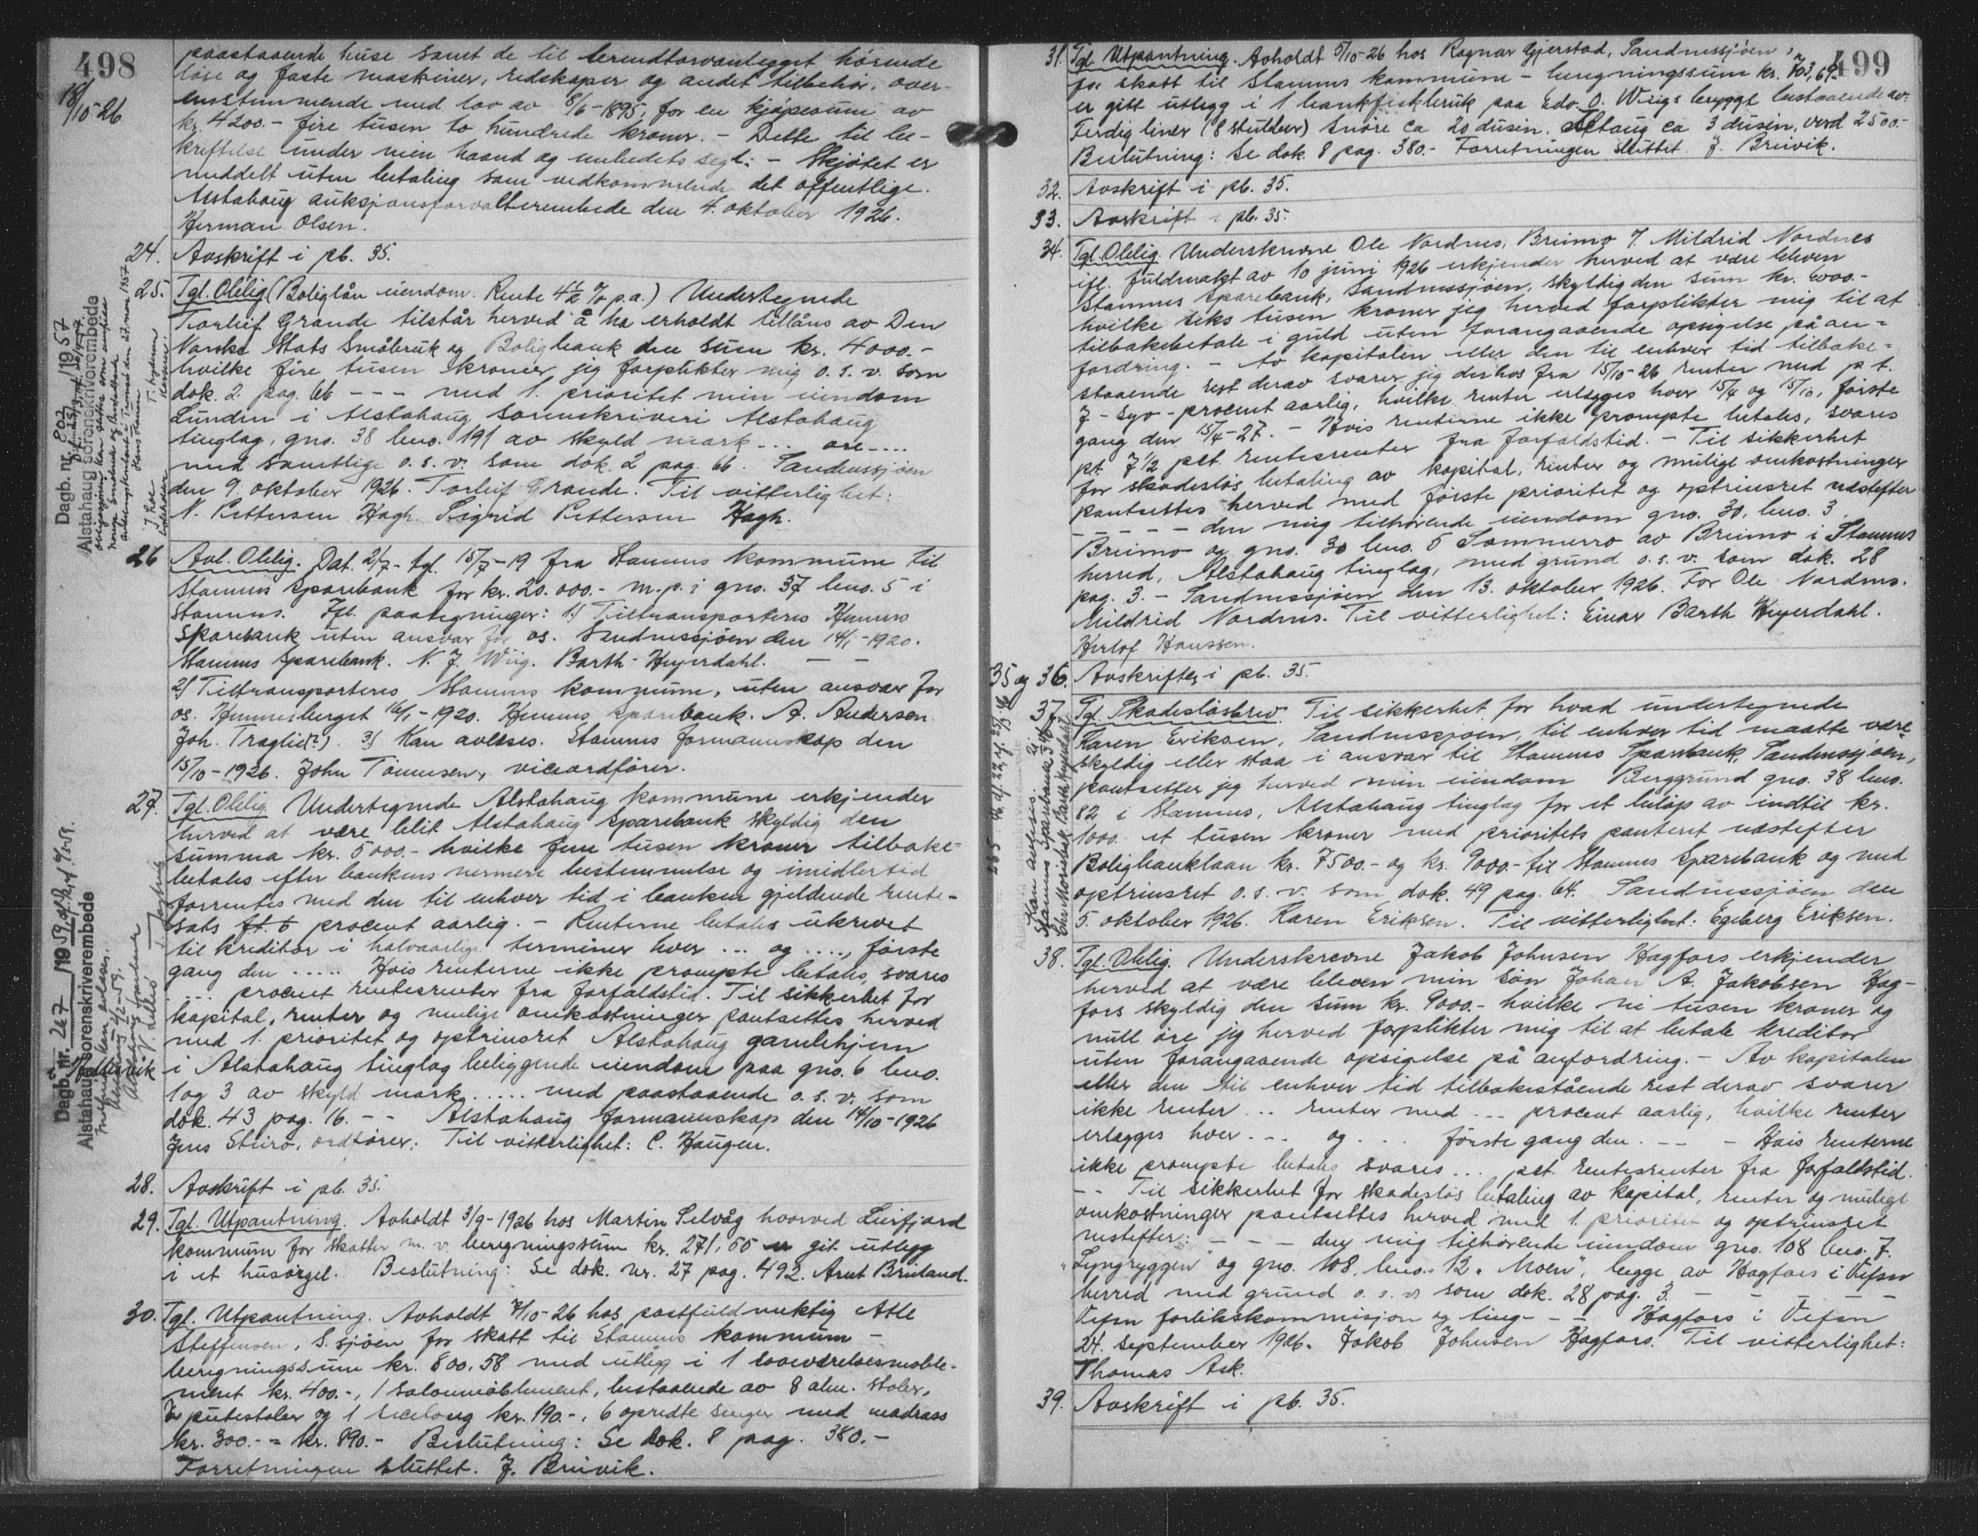 498
18/10-26
paastaaende huse samt de til brendtorvanlegget hörende
löse og faste maskiner, redskaper og andet tilbehör, over-
ensstemmende med lov av 8/6-1895, for en kjøpesum av
kr. 4200.- fire tusen to hundrede kroner. - Dette til be-
kriftelse under min haand og embedets segl: - Skjötet er
meddelt uten betaling som vedkommende det offentlige.
Alstahaug auksjonsforvalterembede den 4. oktober 1926.
Herman Olsen.
24. Avskrift i pb. 35.
25. Tgl. Oblig (Boliglån eiendom. Rente 4½ % p.a.) Undertegnede
Torleif Grande tilstår herved å ha erholdt tillåns av Den
Norske Stats Småbruk og Boligbank den sum kr. 4000.-
hvilke fire tusen kroner jeg forplikter mig o.s.v. som
dok. 2 pag. 66 - - - med 1. prioritet min eiendom
Lunden i Alstahaug sorenskriveri Alstahaug
tinglag, gno. 38 bno. 191 av skyld mark ... öre ....
med samtlige o.s.v. som dok. 2 pag. 66. Sandnessjøen
den 9. oktober 1926. Torleif Grande. Til vitterlighet:
N. Pettersen Hagh. Sigrid Pettersen Hagh.
Dagb. nr. 802 /1957
Alstahaug sorenskriverembede
26 Avl. Oblig. Dat. 2/7- tgl. 15/7-19 fra Stamnes kommune til
Stamnes Sparebank for kr. 20.000.- m.p.i gno. 37 bno. 5 i
Stamnes. Ifl. paategninger: 1) Tiltransporteres Hemnes
Sparebank uten ansvar for os. Sandnessjöen den 14/1-1920.
Stamnes Sparebank. N. J. Wiig. Barth-Heyerdahl. - -
2) Tiltransporteres Stamnes kommune, uten ansvar for
os. Hemnesberget 16/1-1920. Hemnes Sparebank. A. Andersen.
Joh. Traglid(?). 3) Kan avlæses. Stamnes formannskap den
15/10-1926. John Tönnesen, viceordförer.
27. Tgl. Oblig. Undertegnede Alstahaug kommune erkjender
herved at være blit Alstahaug Sparebank skyldig den
summa kr. 5000.- hvilke fem tusen kroner tilbake-
betales efter bankens nermere bestemmelse og imidlertid
forrentes med den til enhver tid i banken gjeldende rente-
sats f.t. 6 procent aarlig. - Renterne betales ukrevet
til kreditor i halvaarlige terminer hver ... og ..., förste
gang den ..... Hvis renterne ikke prompte betales, svares
... procent rentesrenter fra forfaldstid. Til sikkerhet for
kapital, renter og mulige omkostninger pantsettes herved
med 1. prioritet og optrinsret Alstahaug gamlehjem
i Alstahaug tinglag beliggende eiendom paa gno. 6 bno.
1 og 3 av skyld mark ..... med paastaaende o.s.v. som
dok. 43 pag. 16. - - Alstahaug formannskap den 14/10-1926
Jens Steiro, ordförer. Til vitterlighet: C. Haugen.
Dagb. nr. 267 /1959
Alstahaug sorenskriverembede
28. Avskrift i pb. 35.
29. Tgl. Utpantning. Avholdt 3/9-1926 hos Martin Selvåg hvorved Leirfjord
kommune for skatter m.v. beregningssum kr. 271,55 er git utlegg
i et husorgel. Beslutning: Se dok. nr. 27 pag. 492. Arnt Bruland.
30. Tgl. Utpantning. Avholdt 7/10-26 hos postfuldmektig Atle
Steffensen, S.sjöen for skatt til Stamnes kommune -
beregningssum kr. 800,58 med utlegg i 1 soveværelsesmoble-
ment kr. 400.-, 1 salonmöblement, bestaaende av 8 alm. stoler,
2 putestoler og 1 kr. 190.-, 6 opredte senger med madrass
kr. 300.- = kr. 890.- Beslutning: Se dok. 8 pag. 380.-
Forretningen sluttet. J. Breivik.
499
31. Tgl. Utpantning. Avholdt 5/10-26 hos Ragnar Gjerstad, Sandnessjöen,
for skatt til Stamnes kommune - beregningssum kr. 703,69
er gitt utlegg i 1 bankfiskbruk paa Edv. O. Wiigs brygge bestaaende av:
Ferdig liner (8 stubber) Snöre ca 20 dusin. Iletaug ca 3 dusin, verd 2500.-
Beslutning: Se dok. 8 pag. 380.- Forretningen sluttet. J. Breivik.
32. Avskrift i pb. 35.
33. Avskrift i pb. 35.
34. Tgl. Oblig. Underskrevne Ole Nordnes, Breimo v/ Mildrid Nordnes
ifl. fuldmakt av 10 juni 1926 erkjender herved at være bleven
Stamnes Sparebank, Sandnessjöen, skyldig den sum kr. 6000.-
hvilke seks tusen kroner jeg herved forplikter mig til at
tilbakebetale i guld uten forangaaende opsigelse på an-
fordring. - Av kapitalen eller den til enhver tid tilbake-
staaende rest derav svarer jeg derhos fra 15/10-26 renter med p.t.
7- syv - procent aarlig, hvilke renter erlegges hver 15/4 og 15/10, förste
gang den 15/4-27. - Hvis renterne ikke prompte betales, svares
pt. 7½ pct. rentesrenter fra forfaldstid. - Til sikkerhet
for skadeslös betaling av kapital, renter og mulige omkostninger
pantsettes herved med förste prioritet og optrinsret næstefter
- - - - den mig tilhörende eiendom gno. 30. bno. 3
Breimo og gno. 30 bno. 5 Sommerro av Breimo i Stamnes
herred, Alstahaug tinglag, med grund o.s.v. som dok. 28
pag. 3. - Sandnessjöen den 13. oktober 1926. For Ole Nordnes.
Mildrid Nordnes. Til vitterlighet: Einar Barth Heyerdahl.
Herlof Hanssen.
35 og 36. Avskrifter i pb. 35.
37 Tgl. Skadeslösbrev. Til sikkerhet for hvad undertegnede
Karen Eriksen, Sandnessjöen, til enhver tid maatte være
skyldig eller staa i ansvar til Stamnes Sparebank, Sandnessjöen,
pantsetter jeg herved min eiendom Berggrund gno. 38 bno.
82 i Stamnes, Alstahaug tinglag for et belöp av indtil kr.
1000.- et tusen kroner med prioritets panteret næstefter
Boligbanklaan kr. 7500.- og kr. 9000.- til Stamnes Sparebank og med
optrinsret o.s.v. som dok. 49 pag. 64. Sandnessjöen den
5. oktober 1926. Karen Eriksen. Til vitterlighet: Egeberg Eriksen.
38. Tgl. Oblig. Underskrevne Jakob Johnsen Hagfors erkjender
herved at være bleven min sön Johan A. Jakobsen Hag-
fors skyldig den sum kr. 9000.- hvilke ni tusen kroner og
null öre jeg herved forplikter mig til at betale kreditor
uten forangaaende opsigelse på anfordring. - Av kapitalen
eller den til enhver tid tilbakestående rest derav svarer
ikke renter ... renter med ... procent aarlig, hvilke renter
erlegges hver ... og ... förste gang den ... - Hvis renterne
ikke prompte betales svares ... pct. rentesrenter fra forfaldstid.
- - Til sikkerhet for skadeslös betaling av kapital, renter og muligt
omkostninger pantsettes herved med 1. prioritet og optrinsret
nestefter: - - - den mig tilhörende eiendom gno. 108 bno. 7.
"Lyngryggen" og gno. 108, bno. 12. "Moen", begge av Hagfors i Vefsn
herred med grund o.s.v. som dok. 28 pag. 3. - - - -
Vefsn forlikskommisjon og ting- - - Hagfors i Vefsn
24. september 1926. Jakob Johnsen Hagfors. Til vitterlighet:
Thomas Ask.
39. Avskrift i pb. 35.